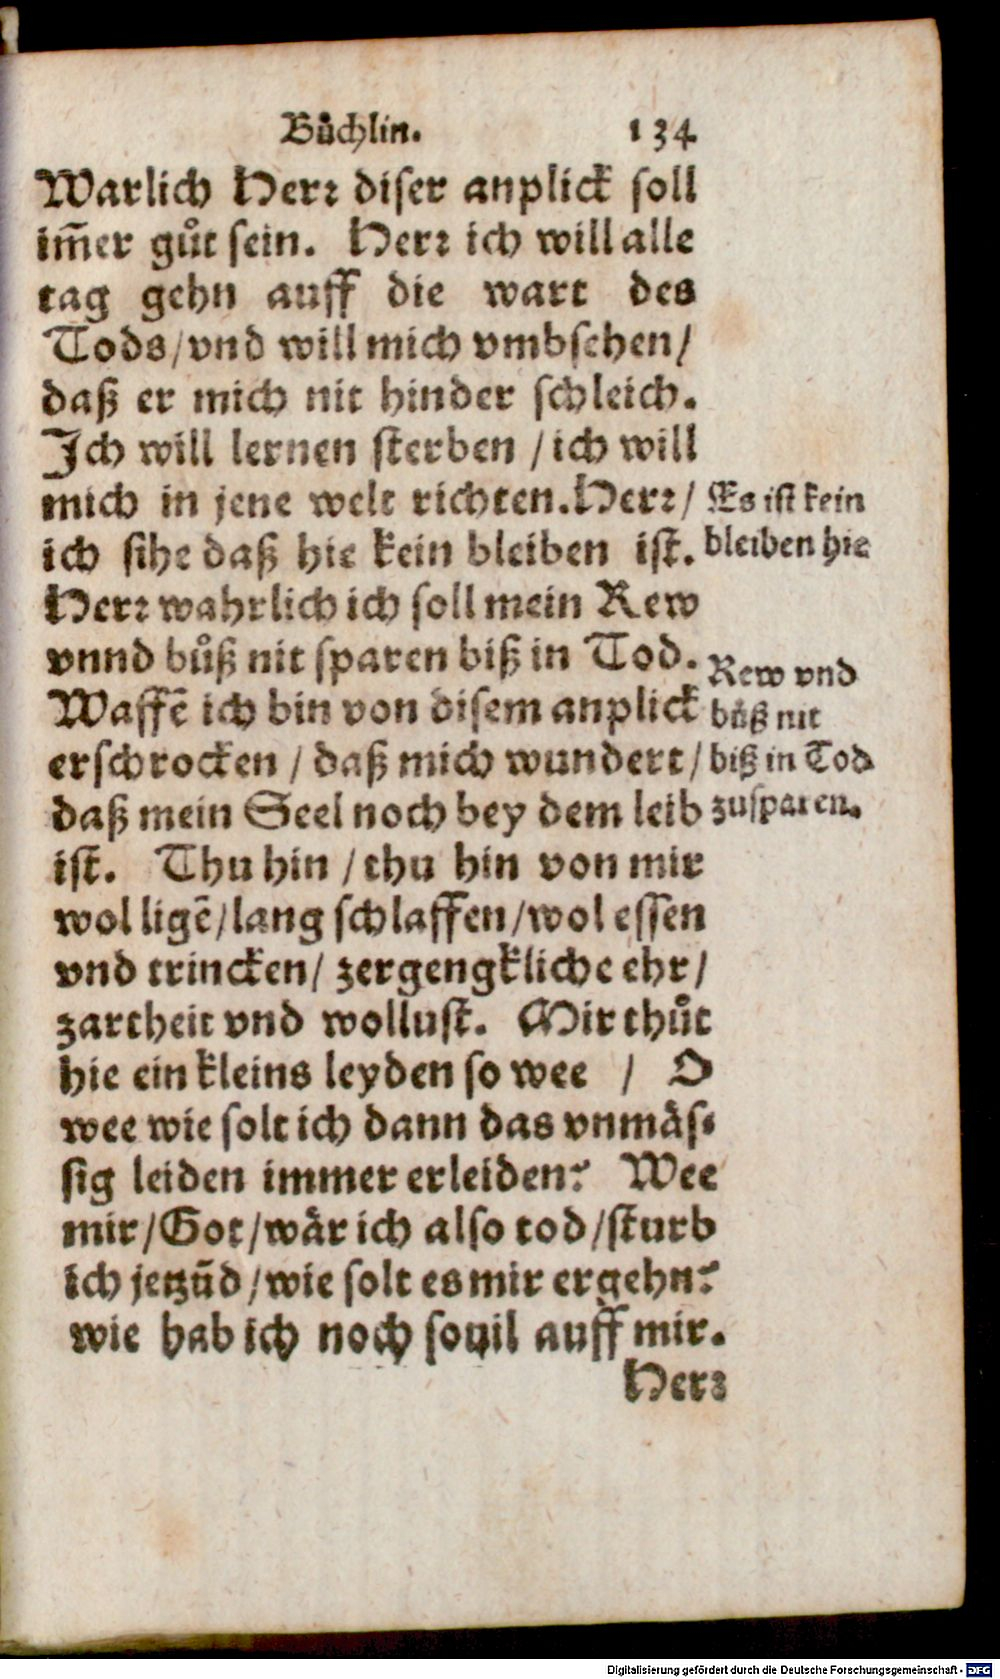 Bůchlin. 134
Warlich Herꝛ diser anplick soll
im̄er gůt sein. Herꝛ ich will alle
tag gehn auff die wart des
Tods/vnd will mich vmbsehen/
daß er mich nit hinder schleich.
Ich will lernen sterben / ich will
mich in jene welt richten. Herꝛ/
ich sihe daß hie kein bleiben ist.
Herꝛ wahrlich ich soll mein Rew
vnnd bůß nit sparen biß in Tod.
Waffē ich bin von disem anplick
erschrocken / daß mich wundert/
daß mein Seel noch bey dem leib
ist. Thu hin / thu hin von mir
wol ligē/lang schlaffen/wol essen
vnd trincken/ zergengkliche ehr/
zartheit vnd wollust. Mir thůt
hie ein kleins leyden so wee / O
wee wie solt ich dann das vnmäs⸗
sig leiden immer erleiden? Wee
mir/Got/wär ich also tod/sturb
ich jetzūd/wie solt es mir ergehn?
wie hab ich noch souil auff mir.
Herꝛ
Es ist kein
bleiben hie
Rew vnd
bůß nit
biß in Tod
zusparen.
Digitalisierung gefördert durch die Deutsche Forschungsgemeinschaft - DFG